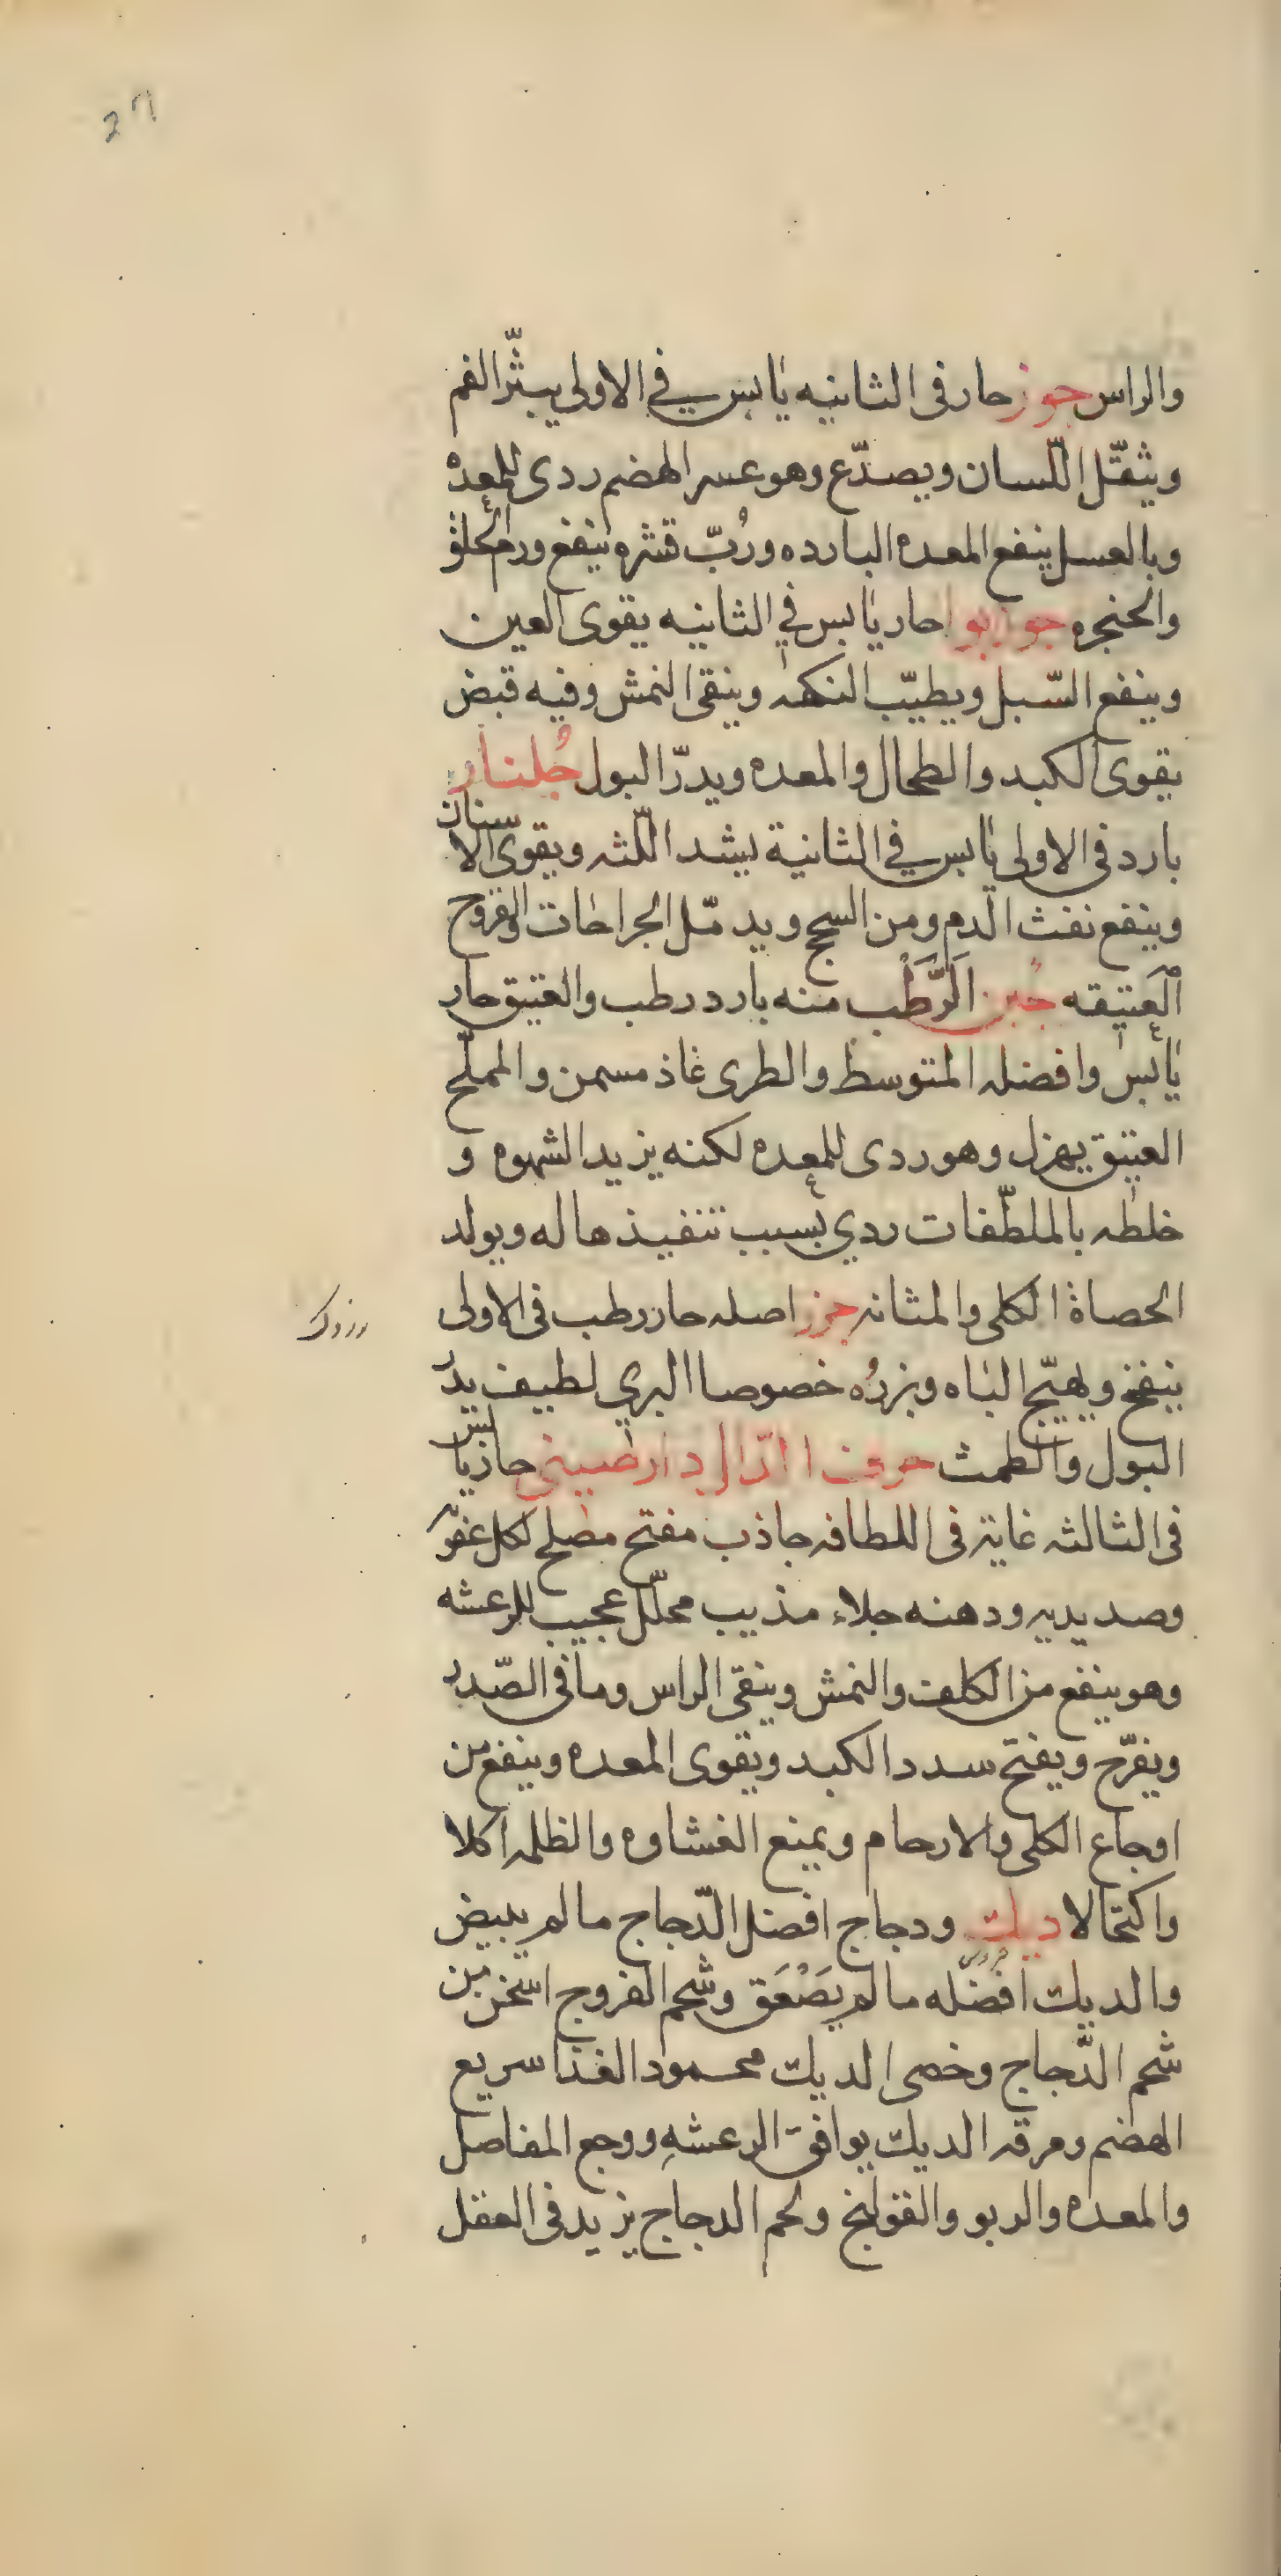 والراس جوز حار فى الثانيه يابس في الاولى يبثّر الفم
ويثقّل اللّسان ويصدّع وهو عسر الهضم ردى للمعده
وبالعسل ينفع المعده البارده ورُبّ قشره ينفع ورم الحلق
والحنجره جوز بوا حار يابس في الثانيه يقوى العين
وينفع السّبل ويطيّب النكهه وينقى النمش وفيه قبض
يقوى الكبد والطحال والمعده ويدرّ البول جُلنار
بارد فى الاولى يابس في الثانية يشد اللّثه ويقوى الاسنان
وينفع نفث الدم ومن السحج ويدمّل الجراحات والقروح
العَتيقه جُبن الرَّطَب منه بارد رطب والعتيق حار
يابس وافضله المتوسط والطرى غاذ مسمن والمملّح
العتيق يهزل وهو ردى للمعده لكنه يزيد الشهوه و
خلطه بالملطّفات ردي بسبب تنفيذها له ويولد
الحصاة الكلى والمثانه جزر اصله حار رطب فى الاولى
ينفخ ويهيّج الباه وبزرُه خصوصا البري لطيف يدر
البول والطمث حرف الدّال دارصينى حار يابس
فى الثالثه غاية فى اللطافه جاذب مفتح مصلح لكل عفونه
وصديديه ودهنه جلاء مذيب محلّل عجيب للرعشه
وهو ينفع من الكلف والنمش وينقى الراس وما فى الصّدر
ويفرّح ويفتح سدد الكبد ويقوى المعده وينفع من
اوجاع الكلى والارحام ويمنع الغشاوه والظلمه اكلا
واكتحالا ديك ودجاج افضل الدّجاج ما لم يبيض
خروس
والديك افضله ما لم يَصْعَق وشحم الفروج اسخن من
شحم الدّجاج وخصى الديك محمود الغذا سريع
الهضم ومرقه الديك يوافق الرعشهِ ووجع المفاصل
والمعده والربو والقولنج ولحم الدجاج يزيد فى العقل